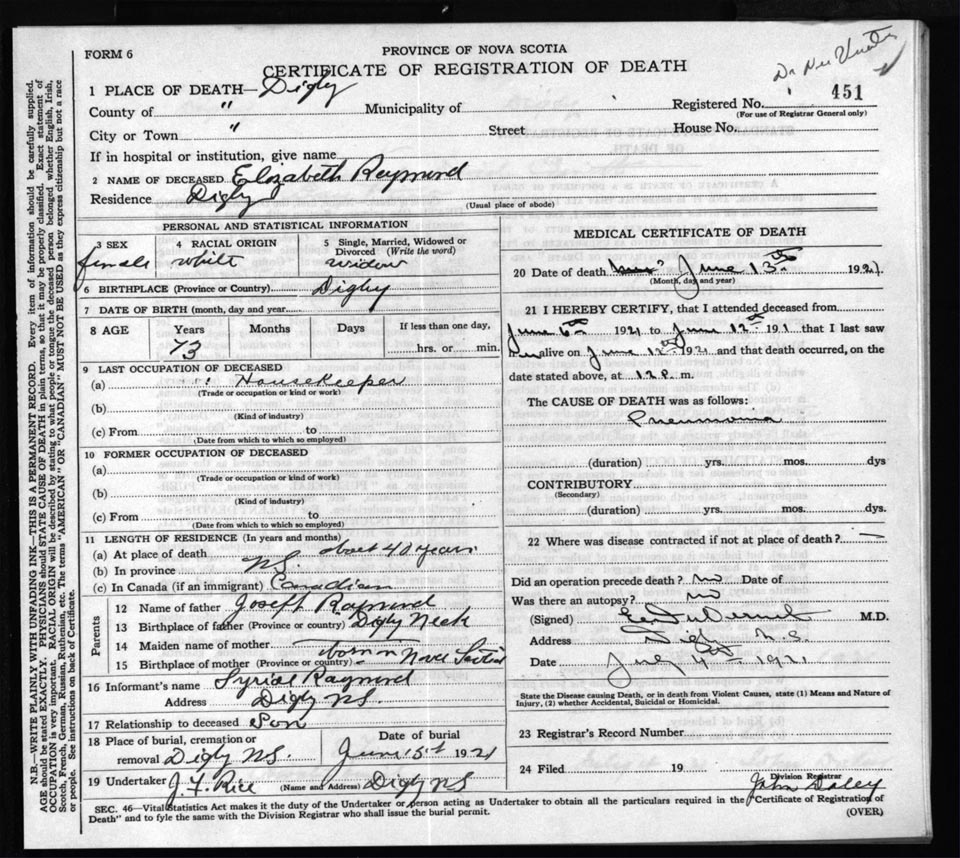 FORM 6
PROVINCE OF NOVA SCOTIA
CERTIFICATE OF REGISTRATION OF DEATH
451
1 PLACE OF DEATH— Digby
County of " Municipality of Registered No.
(For use of Registrar General only)
City or Town " Street House No.
If in hospital or institution, give name
2 NAME OF DECEASED Elizabeth Raymond
Residence Digby
(Usual place of abode)
PERSONAL AND STATISTICAL INFORMATION
3 SEX 4 RACIAL ORIGIN 5 Single, Married, Widowed or Divorced (Write the word)
female white widow
6 BIRTHPLACE (Province or Country) Digby
7 DATE OF BIRTH (month, day and year)
8 AGE Years Months Days If less than one day,
73 hrs. or min.
9 LAST OCCUPATION OF DECEASED
(a) Housekeeper
(Trade or occupation or kind of work)
(b)
(Kind of industry)
(c) From to
(Date from which to which so employed)
10 FORMER OCCUPATION OF DECEASED
(a)
(Trade or occupation or kind of work)
(b)
(Kind of industry)
(c) From to
(Date from which to which so employed)
11 LENGTH OF RESIDENCE (In years and months)
(a) At place of death about 40 years
(b) In province N.S.
(c) In Canada (if an immigrant) Canadian
Parents
12 Name of father Joseph Raymond
13 Birthplace of father (Province or country) Digby Neck
14 Maiden name of mother
15 Birthplace of mother (Province or country) born in Nova Scotia
16 Informant's name Raymond
Address Digby NS.
17 Relationship to deceased Son
18 Place of burial, cremation or removal Digby NS. Date of burial June 1921
19 Undertaker J. F. Rice (Name and Address) Digby NS
MEDICAL CERTIFICATE OF DEATH
20 Date of death June 13th 1921
(Month, day and year)
21 I HEREBY CERTIFY, that I attended deceased from
June 6th 1921 to June 12th 191 that I last saw
her alive on June 12th 1921 and that death occurred, on the
date stated above, at 12 P. m.
The CAUSE OF DEATH was as follows:
Pneumonia
(duration) yrs. mos. dys
CONTRIBUTORY
(Secondary)
(duration) yrs. mos. dys.
22 Where was disease contracted if not at place of death? —
Did an operation precede death? no Date of
Was there an autopsy? no
(Signed) M.D.
Address Digby N.S.
Date July 4th 1921
State the Disease causing Death, or in death from Violent Causes, state (1) Means and Nature of
Injury, (2) whether Accidental, Suicidal or Homicidal.
23 Registrar's Record Number
24 Filed 19
John Daley
Division Registrar
SEC. 46—Vital Statistics Act makes it the duty of the Undertaker or person acting as Undertaker to obtain all the particulars required in the "Certificate of Registration of
Death" and to fyle the same with the Division Registrar who shall issue the burial permit.
(OVER)
N.B.—WRITE PLAINLY WITH UNFADING INK—THIS IS A PERMANENT RECORD. Every item of information should be carefully supplied.
AGE should be stated EXACTLY. PHYSICIANS should STATE CAUSE OF DEATH in plain terms, so that it may be properly classified. Exact statement of
OCCUPATION is very important. RACIAL ORIGIN will be described by stating to what people or tongue the deceased person belonged whether English, Irish,
Scotch, French, German, Russian, Ruthenian, etc. The terms "AMERICAN" OR "CANADIAN" MUST NOT BE USED as they express citizenship but not a race
or people. See instructions on back of Certificate.